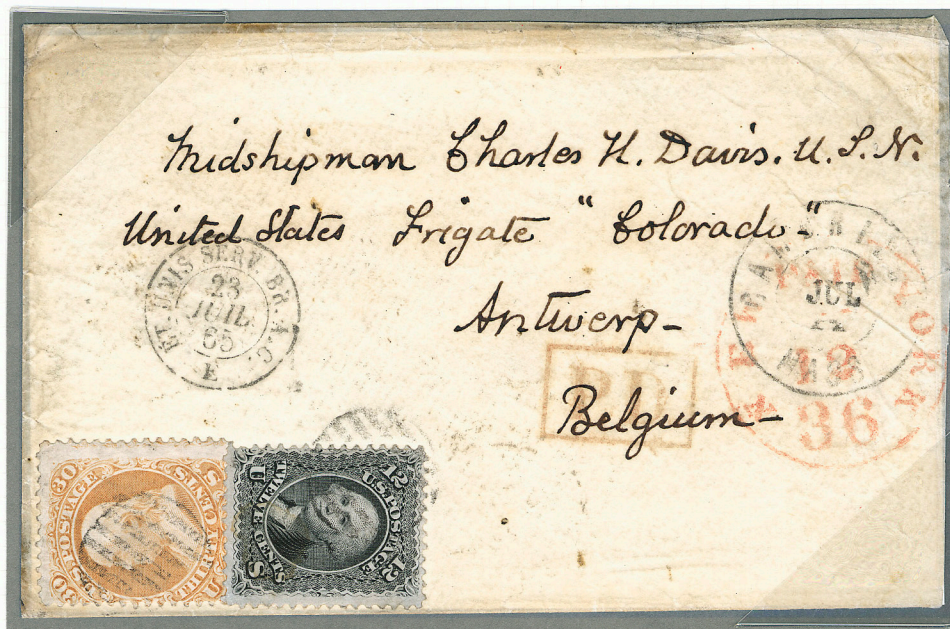 Midshipman Charles H. Davis. U. S. N.
United States Frigate "Colorado-"
Antwerp-
Belgium-
ET. UNIS SERV. BR. A.C.
23
JUIL.
65
E
JUL
NEW YORK
PAID
12
36
P.D.
30 U.S. POSTAGE 30
THIRTY CENTS
U S
12 U.S. POSTAGE 12
U TWELVE CENTS S